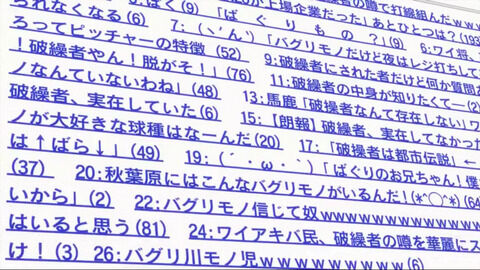 の噂で打線組んだｗｗｗ
が上場企業だった」あとひとつは？(193
られなくなる(2) 6:ぼく(9) 「ばぐりもの？」(9) 6:ワイ将、
ろってピッチャーの特徴(52) 7:(ヽ´ん`)「バグリモノだけど夜はレジ打ちして
！破繰者やん！脱がそ！」(76) 9:破繰者にされた者だけど何か質問
ノなんていないわね」(48) 11:破繰者の中身が知りたくて―(2)
破繰者、実在していた(6) 13:馬鹿「破繰者なんて存在しない」ワ
ノが大好きな球種はなーんだ(20) 15:【朗報】破繰者、実在してなかっ
は↑ばら↓」(49) 17:「破繰者は都市伝説」←
(37) 19:(´・ω・`)「ばぐりのお兄ちゃん！僕
20:秋葉原にはこんなバグリモノがいるんだ！(*^◯^*)(64
いから」(2) 22:バグリモノ信じて奴ｗｗｗｗｗｗｗｗｗｗｗ
はいると思う(81) 24:ワイアキバ民、破繰者の噂を華麗にス
け！(3) 26:バグリ川モノ児ｗｗｗｗｗｗｗｗｗ(6)